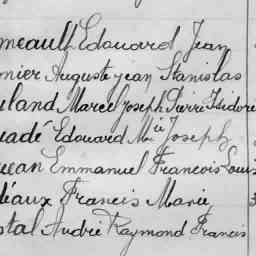 meault Edouard Jean
nier Auguste jean Stanislas
uland Marcel Joseph Pierre Isidore
uadé Edouard M^ie Joseph
uean Emmanuel Francois Louis
déaux Francis Marie
stal André Raymond Francis